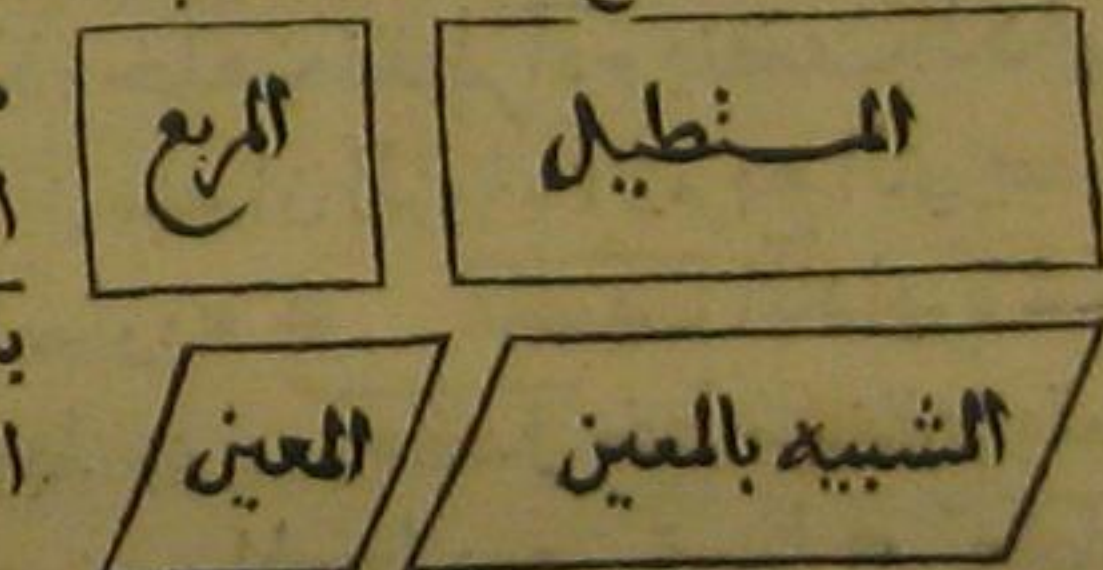 المستطيل
المربع
الشبيه بالمعين
المعين